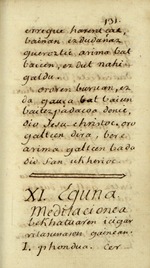 191.
erregue harenezat,
baiñan ez dudanaz
gueroztic arima bat
baicen, ez dut nahi
galdu.
ororen buruan, ez
da gauça bat baicun
baitezpadacoa donie,
dio Jesu christoc, oro
galtcen dira, bere
arima galtcen bado
dio San ukherioc.
XI. Eguna.
Meditacionea
bekhatuaren icigar
ritasunaren gainean.
I. phondua. cer